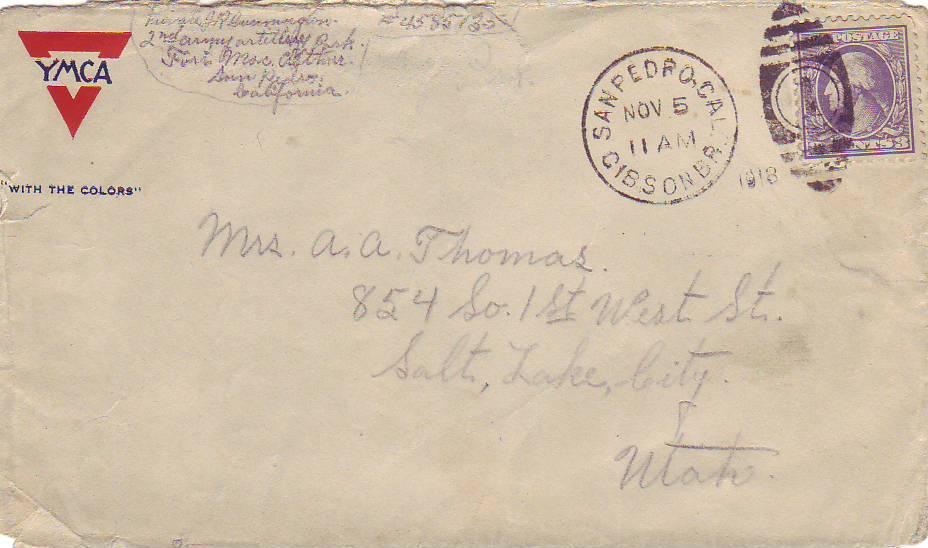 Private J.R. Cunnington. # 4585132
2nd army artillery Park.
Fort Mac Arthur.
San Pedro.
California.
YMCA
"WITH THE COLORS"
SAN PEDRO, CAL.
NOV 5
11 AM
GIBSON BR.
1918
POSTAGE
3 CENTS 3
Mrs. A.A. Thomas.
854 So. 1st West St.
Salt, Lake, City.
Utah.